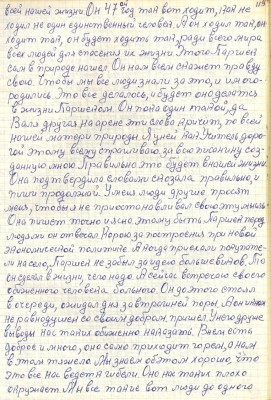 всей нашей жизни Он 47 год так вот ходит, как не
ходил не один единственный человек. А он ходил так, он
ходит так, он будет ходить так, ради всего мира
всех людей для спасения их жизни. Этого Паршек
сам в природе нашел. Он нам всем скажет правду
свою. Чтобы мы все люди знали за это, и много-
родились. Это все делалось, и будет оно делать
в жизни Паршеком. Он пока один такой, да
Валя другая на арене эти слова кричит, по всей
нашей матери природы. Я у ней как Учитель доро-
гой. Этому я вижу спрашиваю за всю писанину соз-
данную мною. Правильно это будет в нашей жизни
Она подтвердила словами сказала правильно, и
пиши продолжай. У меня люди другие просят
меня, чтобы я не приостанавливал свою эту мысль
Она пишет точно и ясно этому быть. Паршек перед
людями он отвоевал Корою за построения при новой
экономической политике. А когда приехали покупате-
ли на село, Паршек не забыл за идею большевиков. Что
он сделал в жизни, чего надо. А сейчас встречаю своего
обиженного человека больного. Он до этого стоял
в очереди, ожидал дня завтрашней поры. А он никак
не равнодушен со своим добром, пришел. У него другие
выводы нас таких обиженно наказать. Всем есть
доброе и много, оно само приходит горем, а нам
в этом тяжело. Мы знаем об этом хорошо, что
это все нас ведет к гибели. Оно нас таких плохо
окружает. Мы все такие вот люди до одного